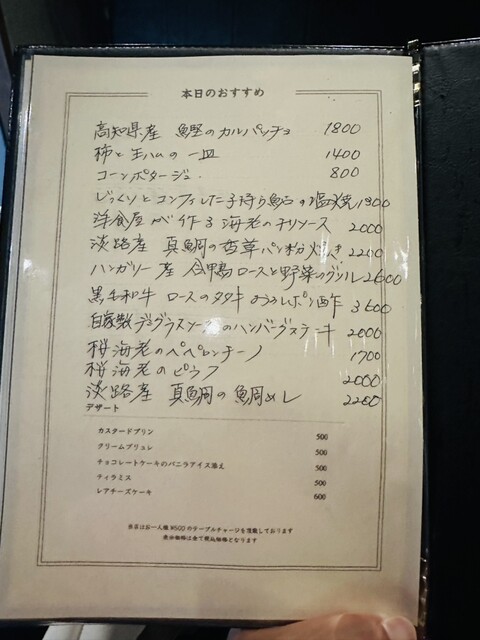 本日のおすすめ
高知県産 鰹のカルパッチョ 1800
柿と生ハムの一皿 1400
コーンポタージュ 800
じっくりとコンフィした子持ち鮎の塩焼 1800
洋食屋が作る海老のチリソース 2000
淡路産 真鯛の香草パン粉焼き 2200
ハンガリー産 合鴨ロースと野菜のグリル 2600
黒毛和牛 ロースのタタキ おろしポン酢 3600
自家製デミグラスソースのハンバーグステーキ 2000
桜海老のペペロンチーノ 1700
桜海老のピラフ 2000
淡路産 真鯛の鯛めし 2200
デザート
カスタードプリン 500
クリームブリュレ 500
チョコレートケーキのバニラアイス添え 500
ティラミス 500
レアチーズケーキ 600
当店はお一人様 ¥500 のテーブルチャージを頂戴しております
表示価格は全て税込価格となります